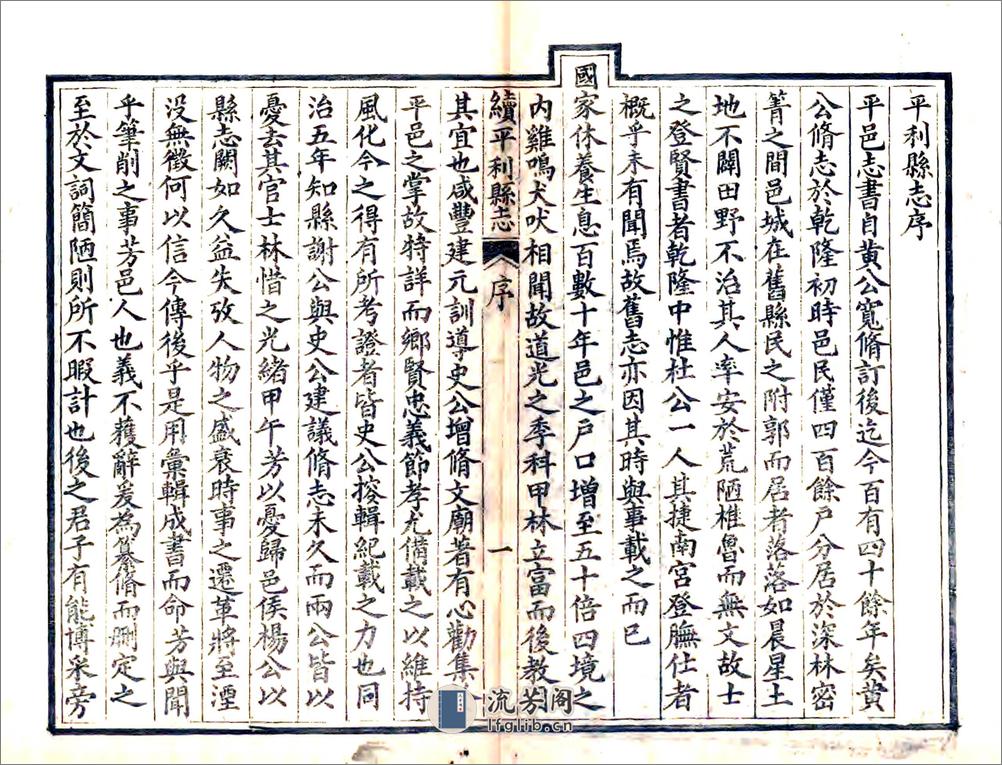 平利縣志序
平邑志書自黃公寬脩訂後迄今百有四十餘年矣黃
公脩志於乾隆初時邑民僅四百餘戶分居於深林密
箐之間邑城在舊縣民之附郭而居者落落如晨星土
地不闢田野不治其人率安於荒陋椎魯而無文故士
之登賢書者乾隆中惟杜公一人其捷南宮登膴仕者
概乎未有聞焉故舊志亦因其時與事載之而已
國家休養生息百數十年邑之戶口增至五十倍四境之
內雞鳴犬吠相聞故道光之季科甲林立富而後教
續平利縣志 序 一
其宜也咸豐建元訓導史公增脩文廟著有心勸集
平邑之掌故特詳而鄉賢忠義節孝尤備載之以維持
風化今之得有所考證者皆史公搜輯紀載之力也同
治五年知縣謝公與史公建議脩志未久而兩公皆以
憂去其官士林惜之光緒甲午芳以憂歸邑侯楊公以
縣志闕如久益失攷人物之盛衰時事之遷革將至湮
没無徵何以信今傳後乎是用彙輯成書而命芳與聞
乎筆削之事芳邑人也義不獲辭爰為纂脩而刪定之
至於文詞簡陋則所不暇計也後之君子有能博采旁
流芳阁
lfglib.cn